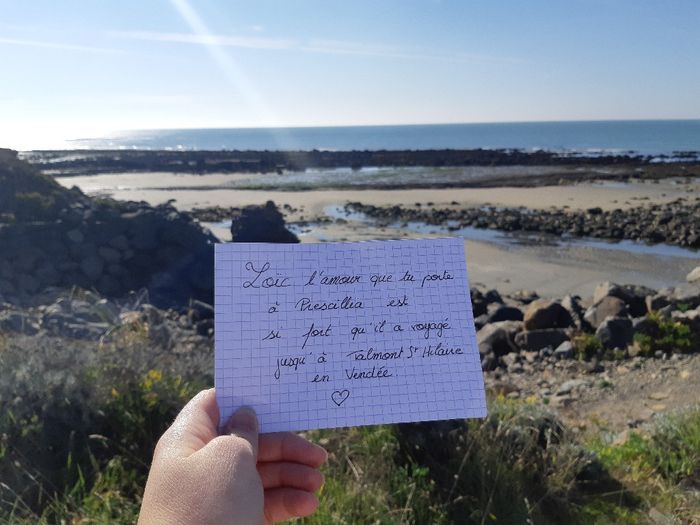 Loïc l'amour que tu porte
à Prescillia est
si fort qu'il a voyagé
jusqu'à Talmont St Hilaire
en Vendée.